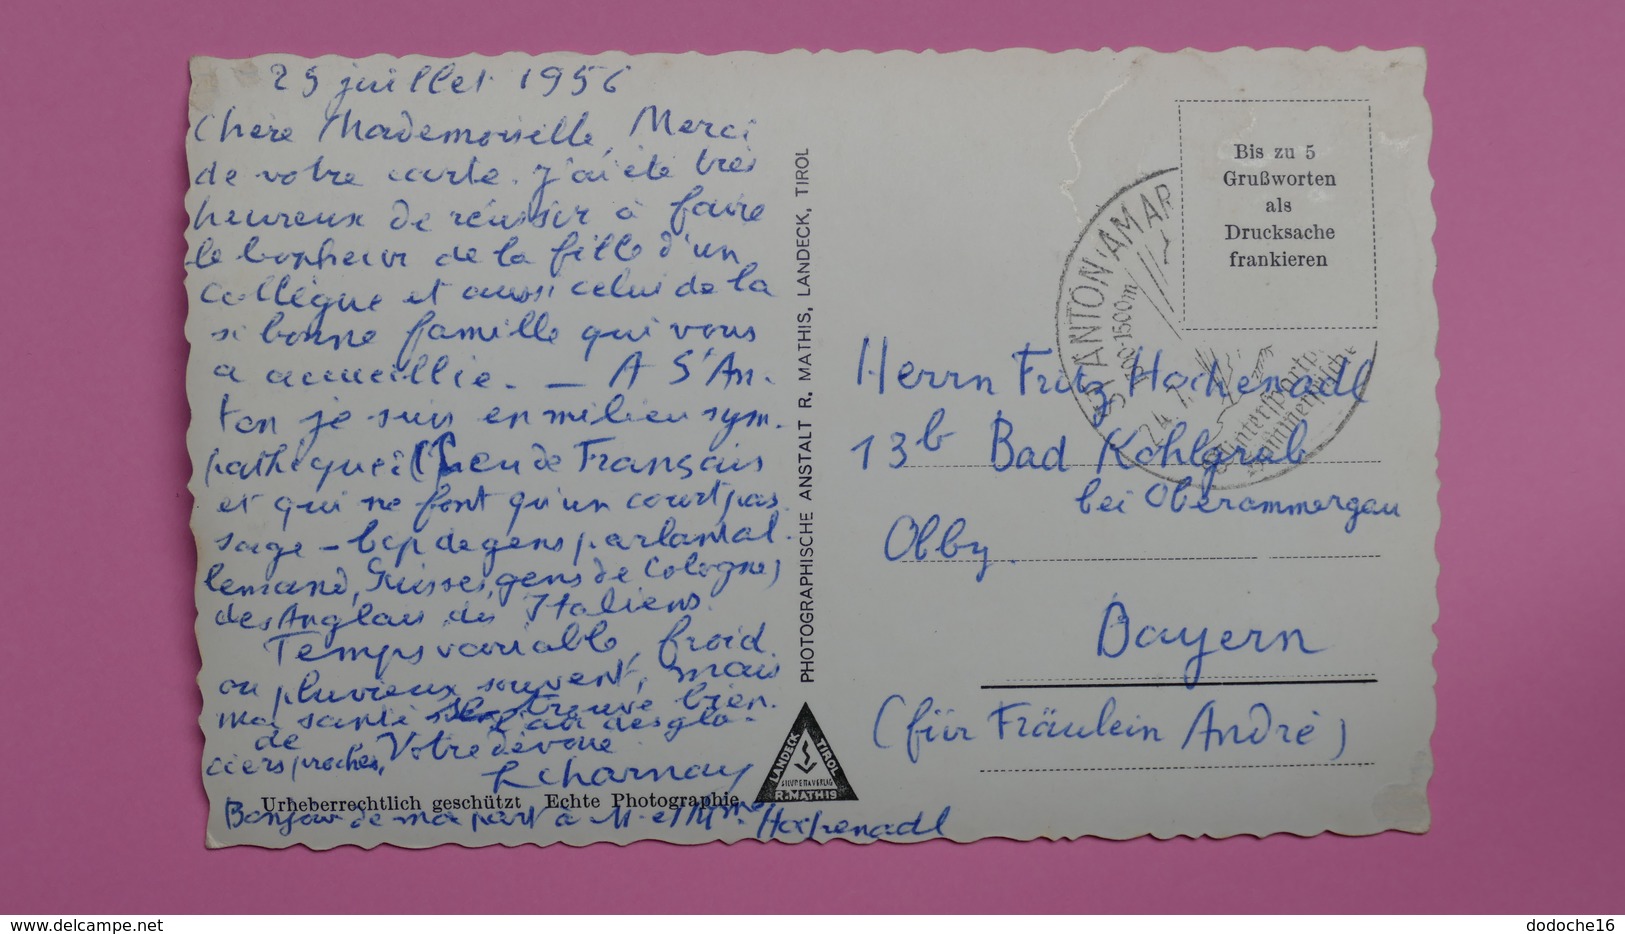 25 juillet 1956
Chère Mademoiselle, Merci
de votre carte. J'ai été très
heureux de réussir à faire
le bonheur de la fille d'un
collègue et aussi celui de la
si bonne famille qui vous
a accueillie. — A St An-
ton je suis en milieu sym-
pathique: (peu de Français
et qui ne font qu'un court pas
sage – bcp de gens parlant al-
lemand, Suisses, gens de Cologne,
des Anglais, des Italiens.
Temps variable, froid
ou pluvieux souvent, mais
ma santé se trouve bien
de l'air des gla-
ciers proches, Votre dévoué
L Charnay
Urheberrechtlich geschützt Echte Photographie
Bonjour de ma part à M. et Mme Hochenadl
PHOTOGRAPHISCHE ANSTALT R. MATHIS, LANDECK, TIROL
LANDECK TIROL
R. MATHIS
Bis zu 5
Grußworten
als
Drucksache
frankieren
ST ANTON AM AR
1500m
24.7.
Wintersport
Herrn Fritz Hochenadl
13b Bad Kohlgrub
bei Oberammergau
Obby.
Bayern
(für Fräulein André)
delcampe.net
dodoche16